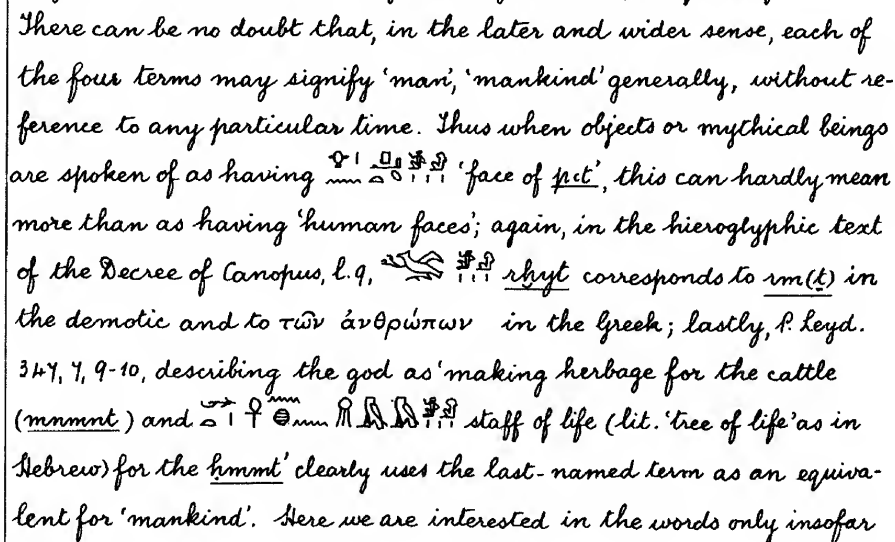 There can be no doubt that, in the later and wider sense, each of
the four terms may signify ‘man’, ‘mankind’ generally, without re-
ference to any particular time. Thus when objects or mythical beings
are spoken of as having ‘face of pꜥt’, this can hardly mean
more than as having ‘human faces’; again, in the hieroglyphic text
of the Decree of Canopus, l. 9, rḫyt corresponds to rm(ṯ) in
the demotic and to τῶν ἀνθρώπων in the Greek; lastly, P. Leyd.
347, 7, 9-10, describing the god as ‘making herbage for the cattle
(mnmnt) and staff of life (lit. ‘tree of life’ as in
Hebrew) for the ḥmmt’ clearly uses the last-named term as an equiva-
lent for ‘mankind’. Here we are interested in the words only insofar